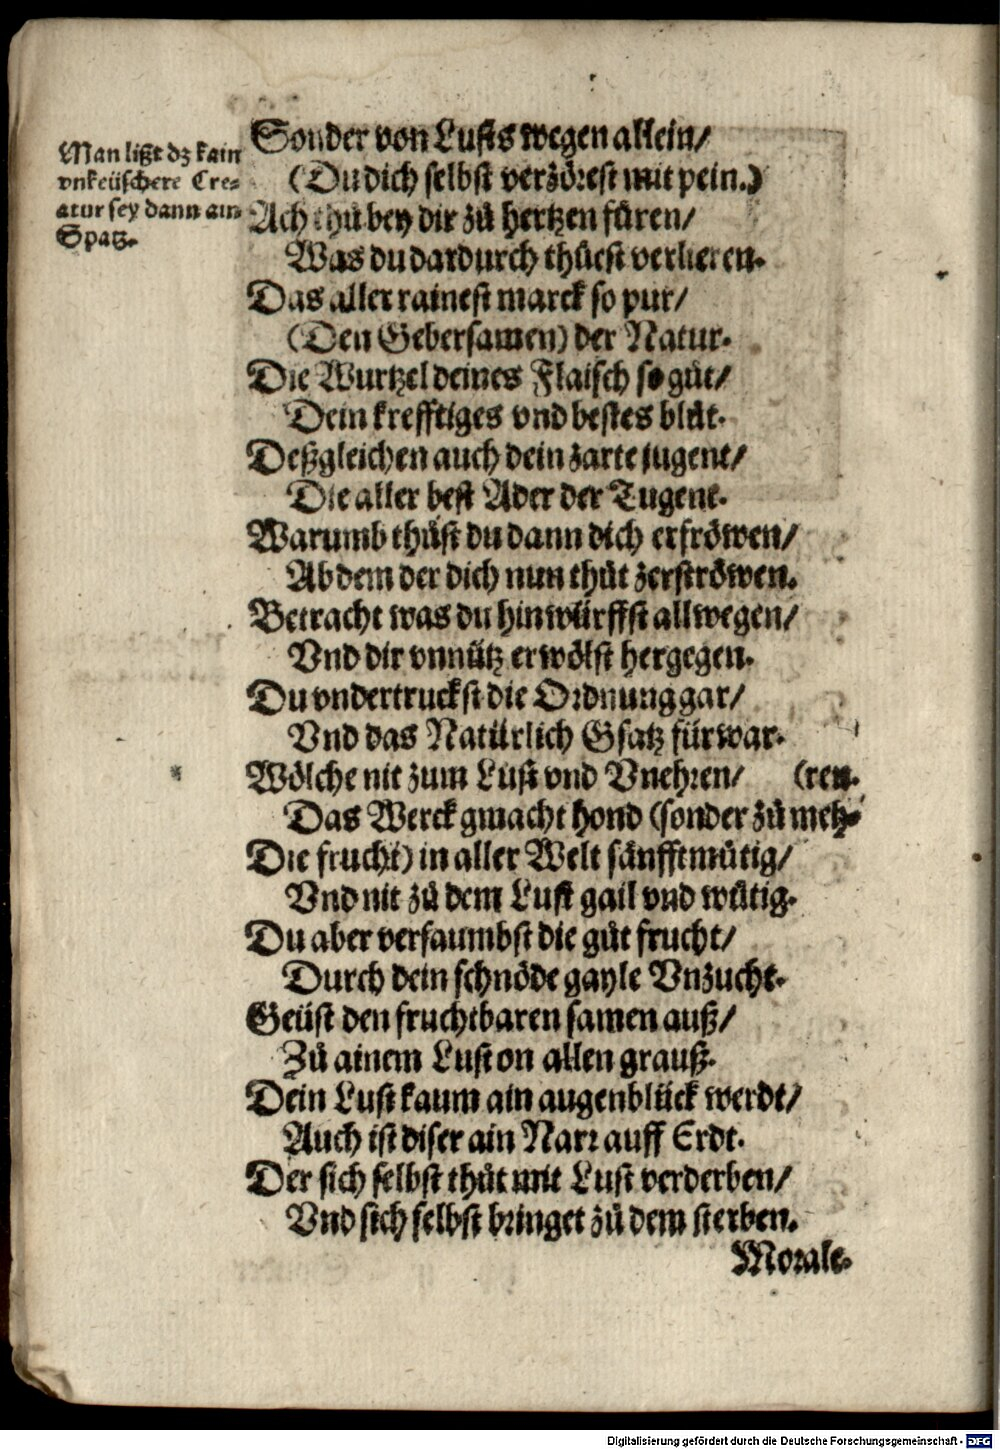 Man lißt dz kain
vnkeüschere Cre⸗
atur sey dann ain
Spatz.
Sonder von Lusts wegen allein/
(Du dich selbst verzörest mit pein.)
Ach thů bey dir zů hertzen füren/
Was du dardurch thůest verlieren.
Das aller rainest marck so pur/
(Den Gebersamen) der Natur.
Die Wurtzel deines Flaisch so gůt/
Dein krefftiges vnd bestes blůt.
Deßgleichen auch dein zarte jugent/
Die aller best Ader der Tugent.
Warumb thůst du dann dich erfröwen/
Ab dem der dich nun thůt zerströwen.
Betracht was du hinwürffst allwegen/
Vnd dir vnnütz erwölst hergegen.
Du vndertruckst die Ordnung gar/
Vnd das Natürlich Gsatz fürwar.
Wölche nit zum Lust vnd Vnehren/ (ren.
Das Werck gmacht hond (sonder zů meh⸗
Die frucht) in aller Welt sänfftmütig/
Vnd nit zů dem Lust gail vnd wůtig.
Du aber versaumbst die gůt frucht/
Durch dein schnöde gayle Vnzucht.
Geüst den fruchtbaren samen auß/
Zů ainem Lust on allen grauß.
Dein Lust kaum ain augenblück werdt/
Auch ist diser ain Narr auff Erdt.
Der sich selbst thůt mit Lust verderben/
Vnd sich selbst bringet zů dem sterben.
Morale.
Digitalisierung gefördert durch die Deutsche Forschungsgemeinschaft - DFG